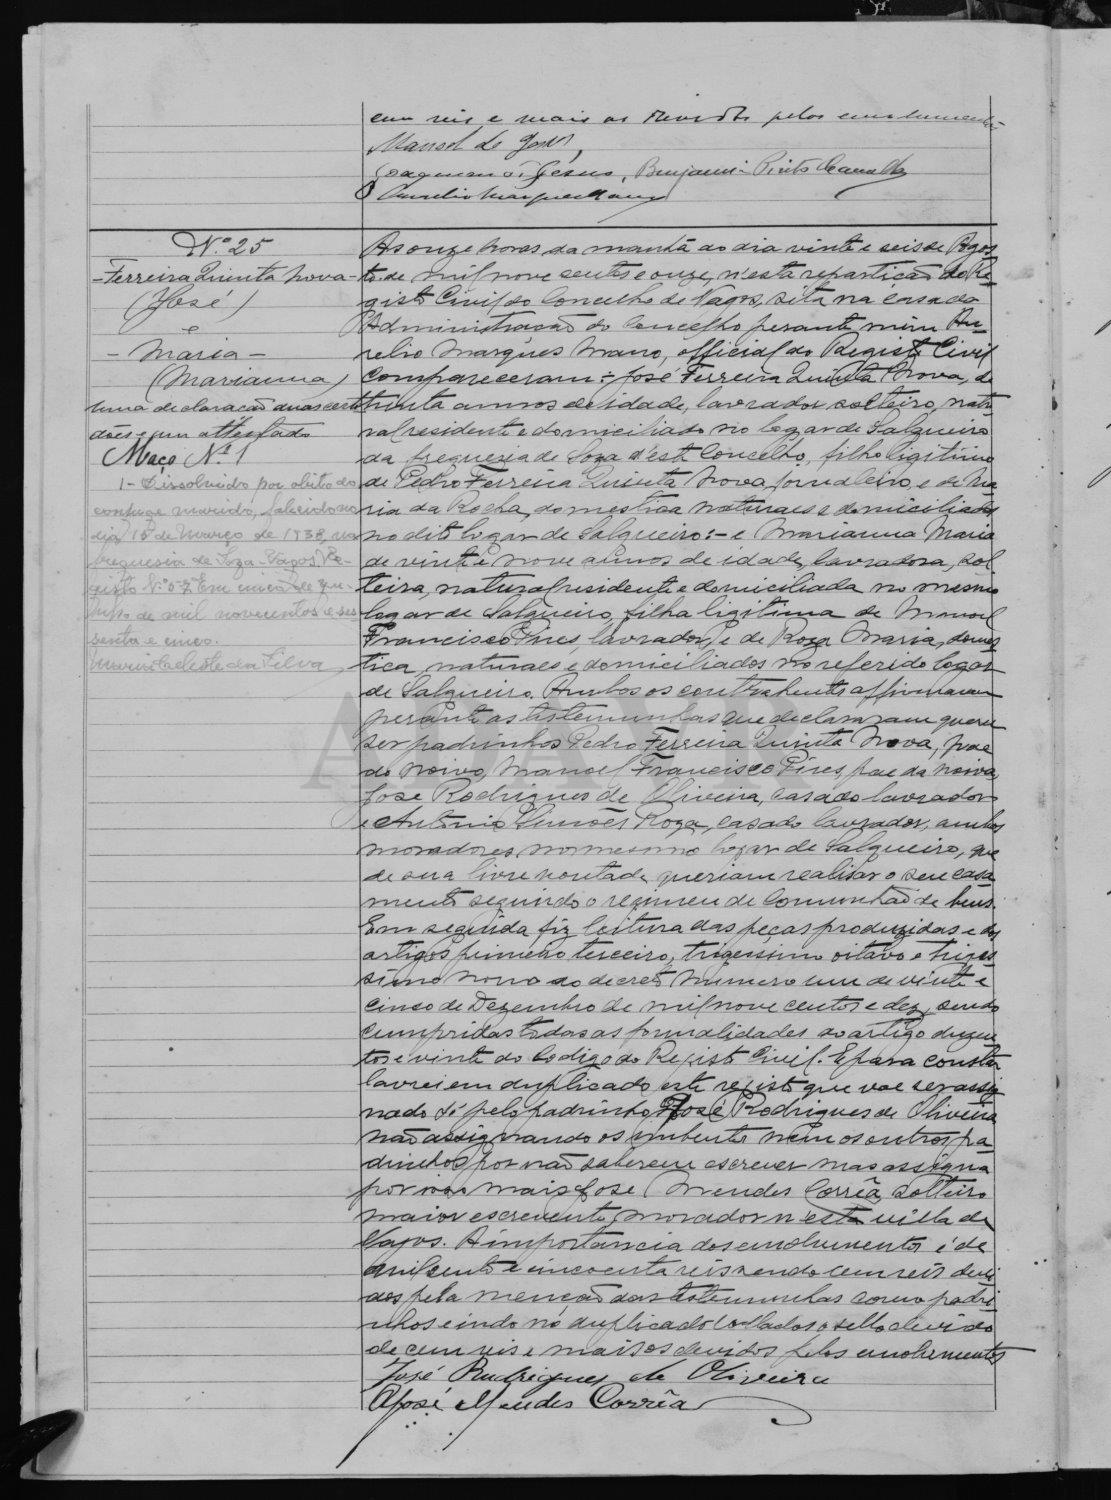 cem reis e mais os devidos pelos emolumentos
Manoel de Jesus,
Joaquim de Jesus, Benjamin Pinto
Aurelio Marques Mano
Nº 25
- Ferreira Quinta Nova -
(José)
e
- Maria -
(Marianna)
uma declaração duas certi
dões e um attestado
Maço Nº 1
1- Dissolvido por obito do
conjuge marido, falecido no
dia 15 de Março de 1938, na
freguesia de Soza - Vagos. Re-
gisto Nº 57. Em cinco de
de mil novecentos e ses
senta e cinco.
Maria Celeste da Silva
As onze horas da manhã do dia vinte e seis de Agos
to de mil nove centos e onze, n'esta repartição do Re-
gisto Civil do Concelho de Vagos, sita na casa da
Administração do Concelho perante mim Au-
relio Marques Mano, official do Registo Civil
compareceram:- José Ferreira Quinta Nova, de
trinta annos de idade, lavrador solteiro, natu
ral residente e domiciliado no logar de Salgueiro
da freguesia de Soza d'este Concelho, filho ligitimo
de Pedro Ferreira Quinta Nova, jornaleiro, e de Ma
ria da Rocha, domestica naturaes e domiciliados
no dito logar de Salgueiro:- e Marianna Maria
de vinte e nove annos de idade, lavradora, sol
teira, natural residente e domiciliada no mesmo
logar de Salgueiro, filha ligitima de Manoel
Francisco Pires, lavrador, e de Roza Maria, domes
tica, naturaes e domiciliados no referido logar
de Salgueiro. Ambos os contrahentes affirmaram
perante as testemunhas que declararam querer
ser padrinhos Pedro Ferreira Quinta Nova, pae
do noivo, Manoel Francisco Pires, pae da noiva,
José Rodrigues de Oliveira, casado lavrador
e Antonio Simões Roza, casado lavrador, ambos
moradores no mesmo logar de Salgueiro, que
de sua livre vontade queriam realisar o seu casa
mento seguindo o regimen de Comunhão de bens.
Em seguida fiz leitura das peças produzidas e dos
artigos primeiro terceiro, trigessimo oitavo e triges
simo nono do decreto numero um de vinte e
cinco de Dezembro de mil nove centos e dez, sendo
cumpridas todas as formalidades do artigo duzen
tos e vinte do Codigo do Registo Civil. E para constar
lavrei em duplicado este registo que vae ser assig
nado só pelo padrinho José Rodrigues de Oliveira
não assignando os nubentes nem os outros pa
drinhos por não saberem escrever mas assigna
por mais José Mendes Corrêa, solteiro
maior escrevente, morador n'esta villa de
Vagos. A importancia dos emolumentos é de
mil cento e cincoenta reis sendo cem reis devi
dos pela menção das testemunhas como padri
nhos e indo no duplicado collado o sello devido
de cem reis e mais os devidos pelos emolumentos
José Rodrigues de Oliveira
José Mendes Corrêa